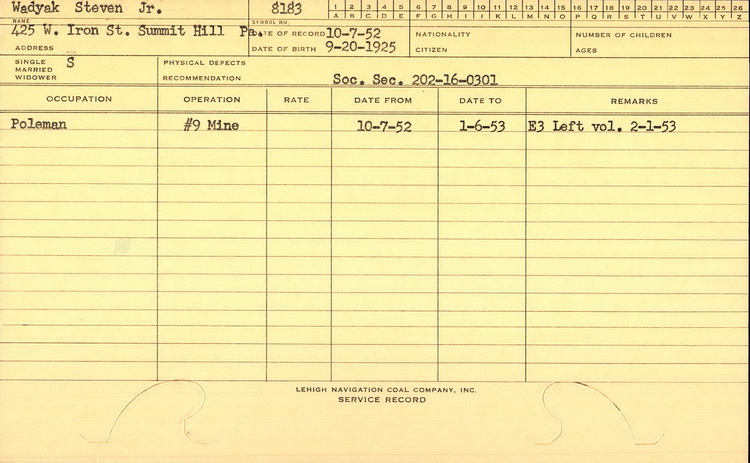 Wadyak Steven Jr. 8183 1 2 3 4 5 6 7 8 9 10 11 12 13 14 15 16 17 18 19 20 21 22 23 24 25 26
NAME SYMBOL NO. A B C D E F G H I J K L M N O P Q R S T U V W X Y Z
425 W. Iron St. Summit Hill Pa. DATE OF RECORD 10-7-52 NATIONALITY NUMBER OF CHILDREN
ADDRESS DATE OF BIRTH 9-20-1925 CITIZEN AGES
SINGLE S PHYSICAL DEFECTS
MARRIED
WIDOWER RECOMMENDATION Soc. Sec. 202-16-0301
OCCUPATION OPERATION RATE DATE FROM DATE TO REMARKS
Poleman #9 Mine 10-7-52 1-6-53 E3 Left vol. 2-1-53
LEHIGH NAVIGATION COAL COMPANY, INC.
SERVICE RECORD